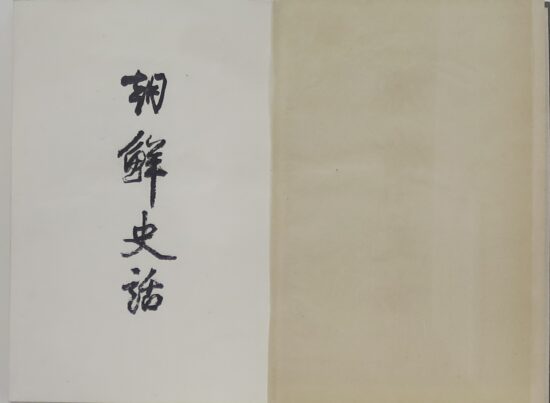 朝鮮史話